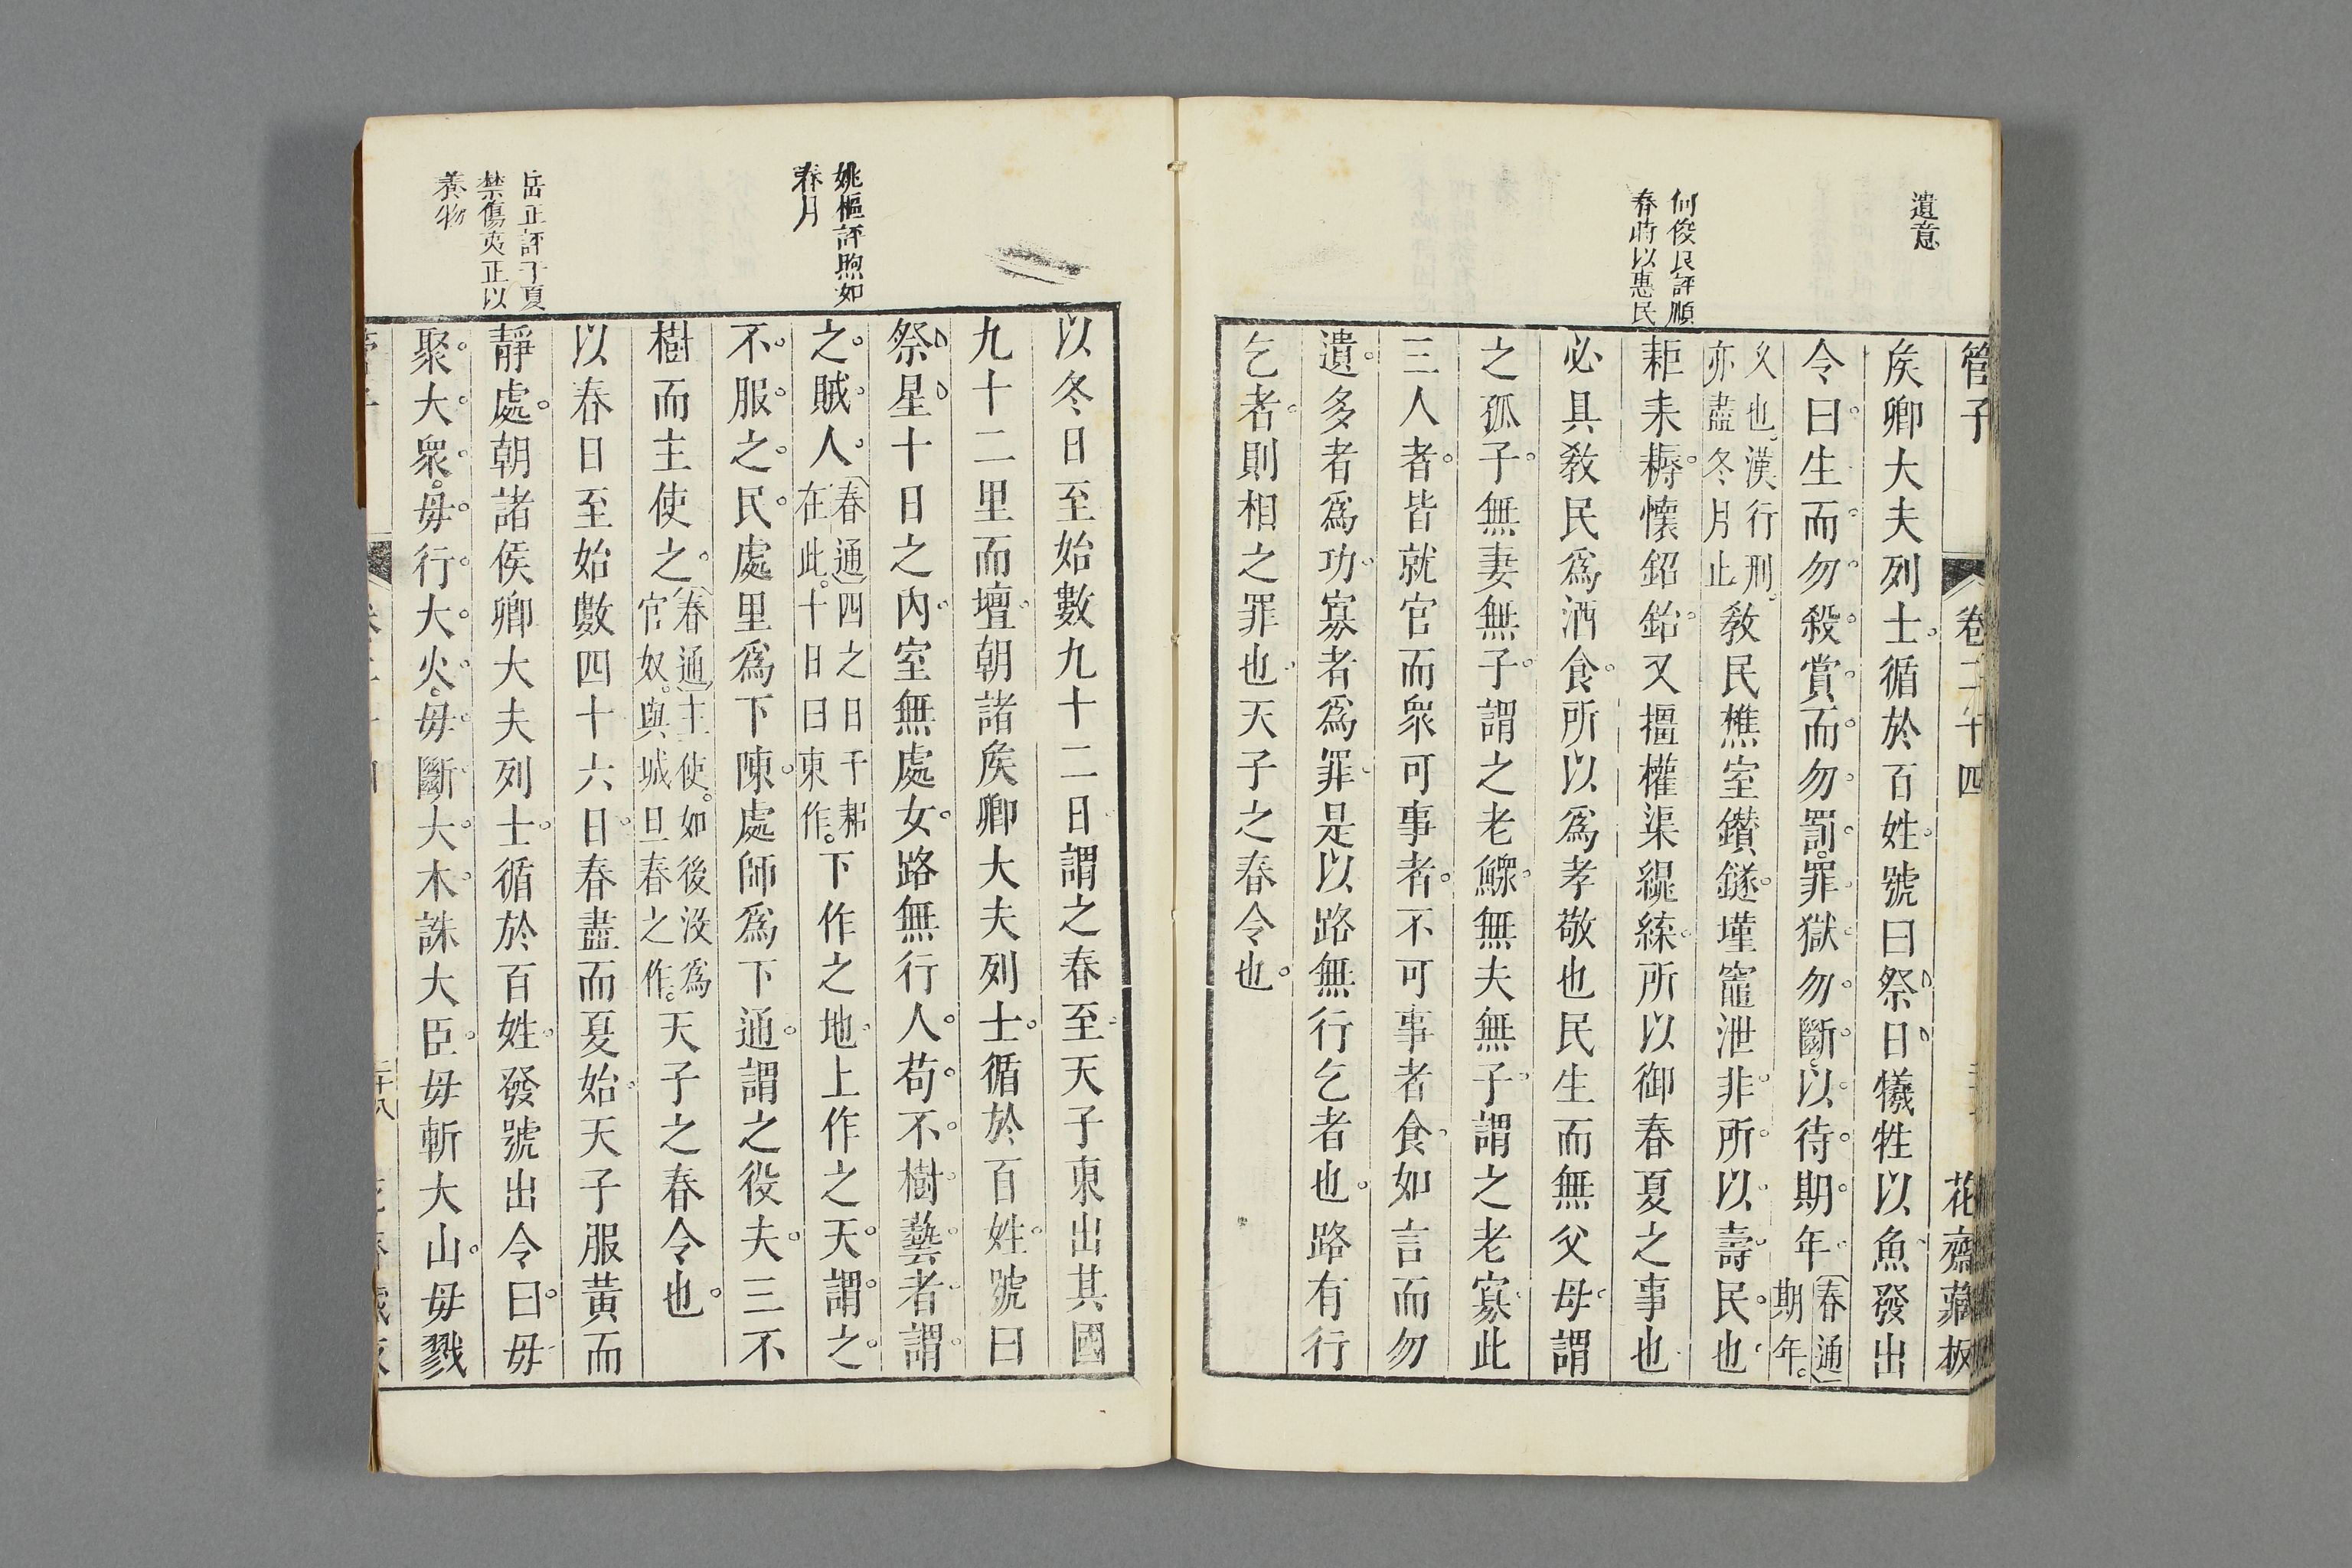 遺意
何俊良評順
春時以惠民
管子
卷二十四
花齋藏板
矦卿大夫列士循於百姓號曰祭日犧牲以魚發出
令曰生而勿殺賞而勿罰罪獄勿斷以待期年春通期年
久也漢行刑亦盡冬月止教民樵室鑽鐩墐竈泄非所以壽民也
耟耒耨懷鉊鉛又橿權渠繉緤所以御春夏之事也
必具教民爲酒食所以爲孝敬也民生而無父母謂
之孤子無妻無子謂之老鰥無夫無子謂之老寡此
三人者皆就官而衆可事者不可事者食如言而勿
遺多者爲功寡者爲罪是以路無行乞者也路有行
乞者則相之罪也天子之春令也
姚樞評煦如
春月
岳正評于夏
禁傷夷正以
養物
以冬日至始數九十二日謂之春至天子東出其國
九十二里而壇朝諸矦卿大夫列士循於百姓號曰
祭星十日之內室無處女路無行人苟不樹藝者謂
之賊人春通四之日于耜在此十日曰東作下作之地上作之天謂之
不服之民處里爲下陳處師爲下通謂之役夫三不
樹而主使之春通主使如後没爲官奴與城旦春之作天子之春令也
以春日至始數四十六日春盡而夏始天子服黃而
靜處朝諸侯卿大夫列士循於百姓發號出令曰毋
聚大衆毋行大火毋斷大木誅大臣毋斬大山毋戮